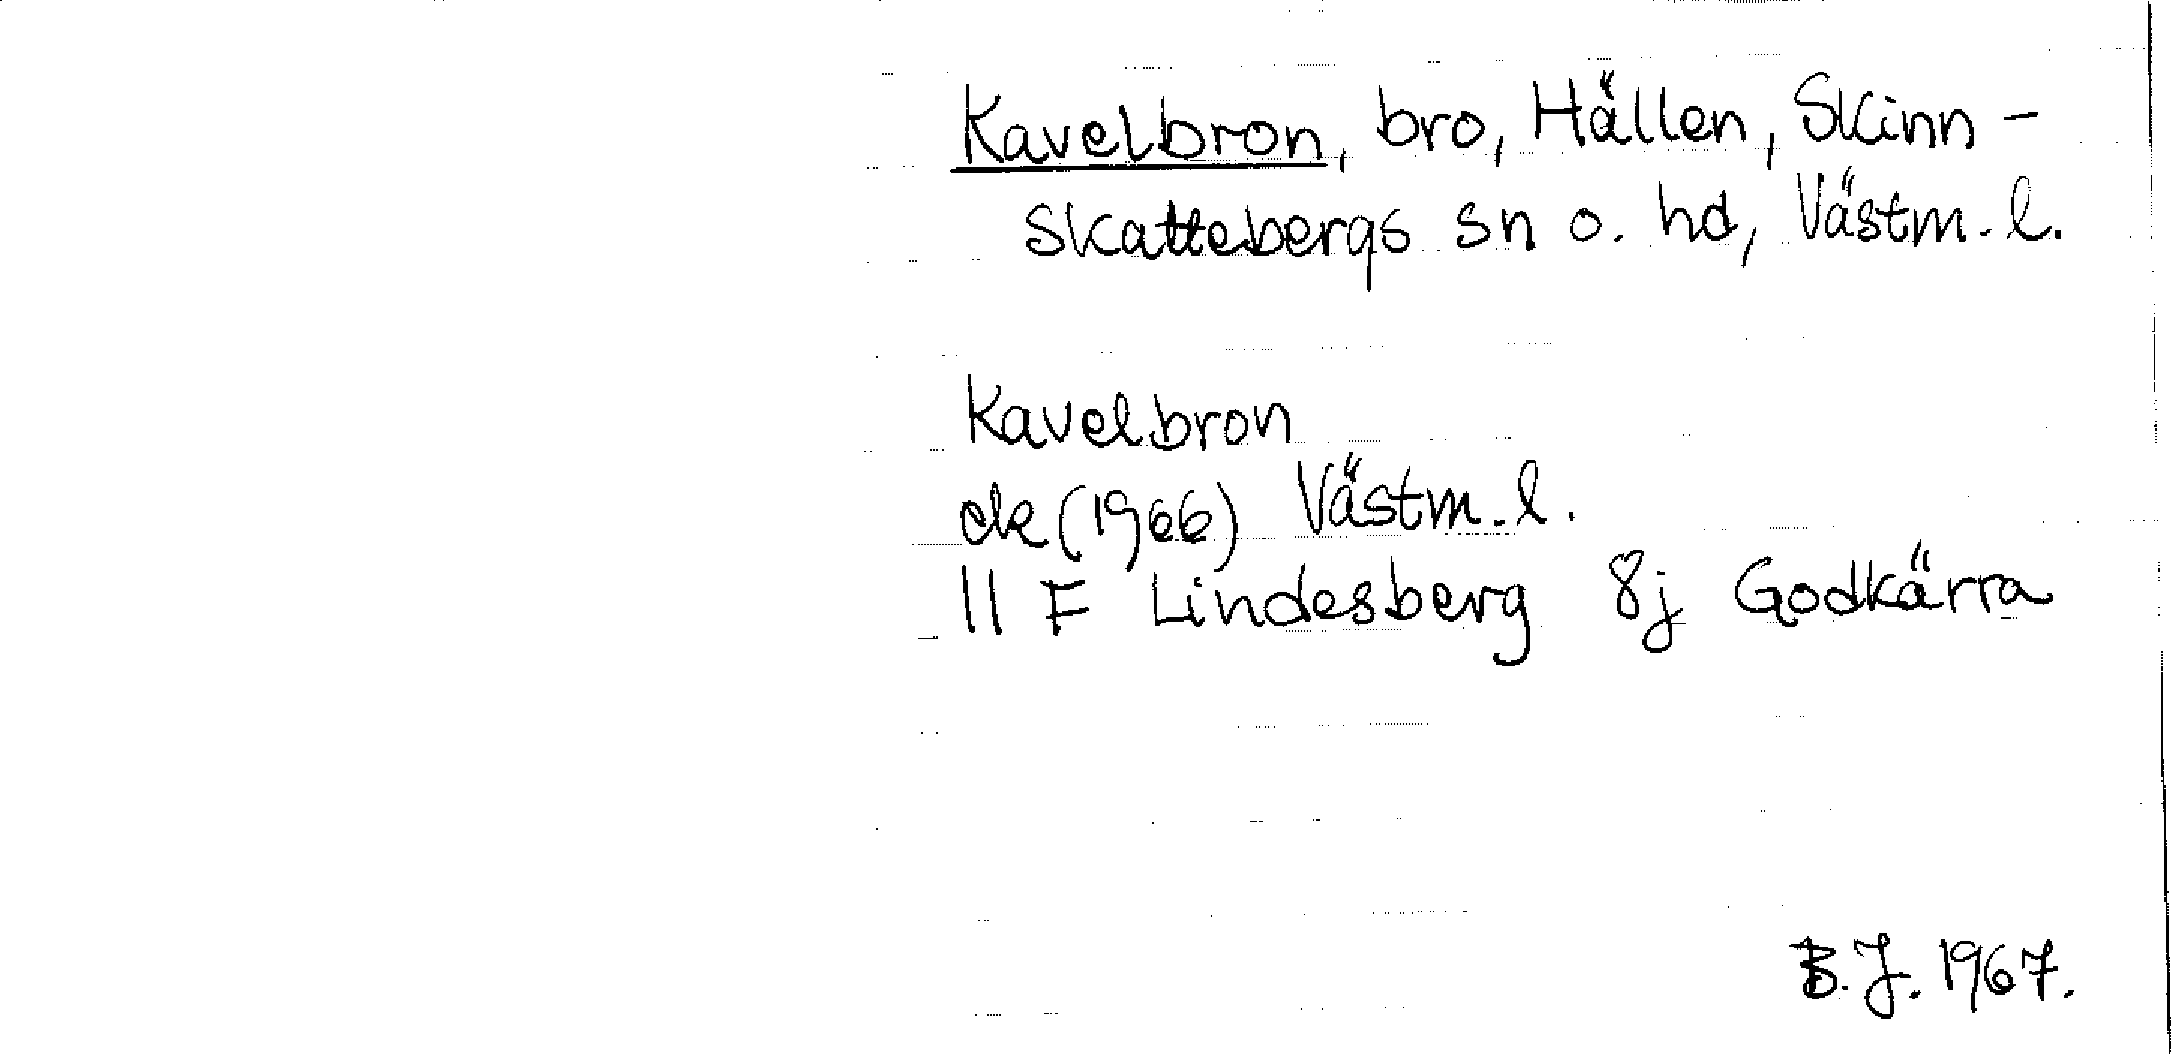 Kavelbron, bro, Hällen, Skinn-
skattebergs sn o. hd, Västm.l.
Kavelbron
ek (1966) Västm.l.
11 F Lindesberg 8j Godkärra
B.J. 1967.